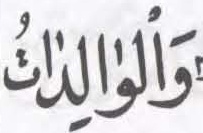 وَالْوٰالِدٰاتُ